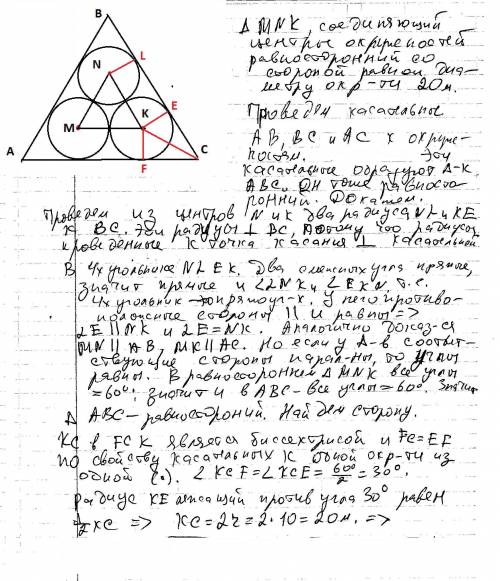 B
N
L
E
M
K
A
F
C
Δ MNK, соединяющий
центры окружностей
равносторонний со
стороной равной диа-
метру окр-ти 20м.
Проведем касательные
AB, BC и AC к окруж-
ностям. Эти
касательные образуют Δ-к
ABC. Он тоже равносто-
ронний. Докажем.
Проведем из центров N и K два радиуса NL и KE
к BC. Эти радиусы ⊥ BC, потому что радиусы,
проведенные к точка касания ⊥ касательной.
В 4х угольнике NLEK. Два смежных угла прямые,
значит прямые и ∠LNK и ∠EKN, т.е.
4х угольник - это прямоуг-к. У него противо-
положные стороны || и равны =>
LE || NK и LE = NK. Аналогично доказ-ся
MN || AB, MK || AC. Но если у Δ-в соответ-
ствующие стороны парал-ны, то углы
равны. В равностороннем Δ MNK все углы
=60°, значит и в ABC - все углы = 60°. Значит
Δ ABC - равносторонний. Найдем сторону.
KC в FCK является биссектрисой и FC=EF
по свойству касательных к одной окр-ти из
одной (.). ∠KCF = ∠KCE = 60°/2 = 30°.
Радиус KE лежащий против угла 30° равен
1/2 KC => KC = 2r = 2·10 = 20м. =>